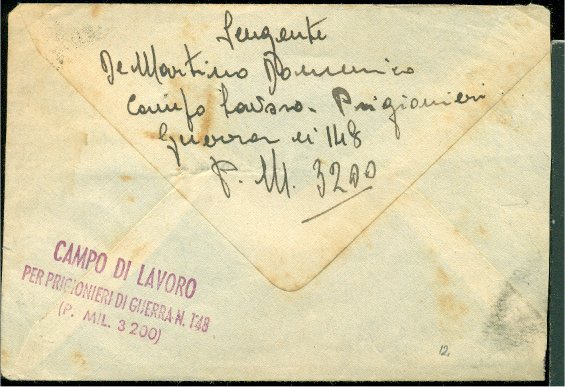 Sergente
De Martino Domenico
Campo Lavoro - Prigionieri
Guerra n 148
P. M. 3200
CAMPO DI LAVORO
PER PRIGIONIERI DI GUERRA N. 148
(P. MIL. 3200)
12.